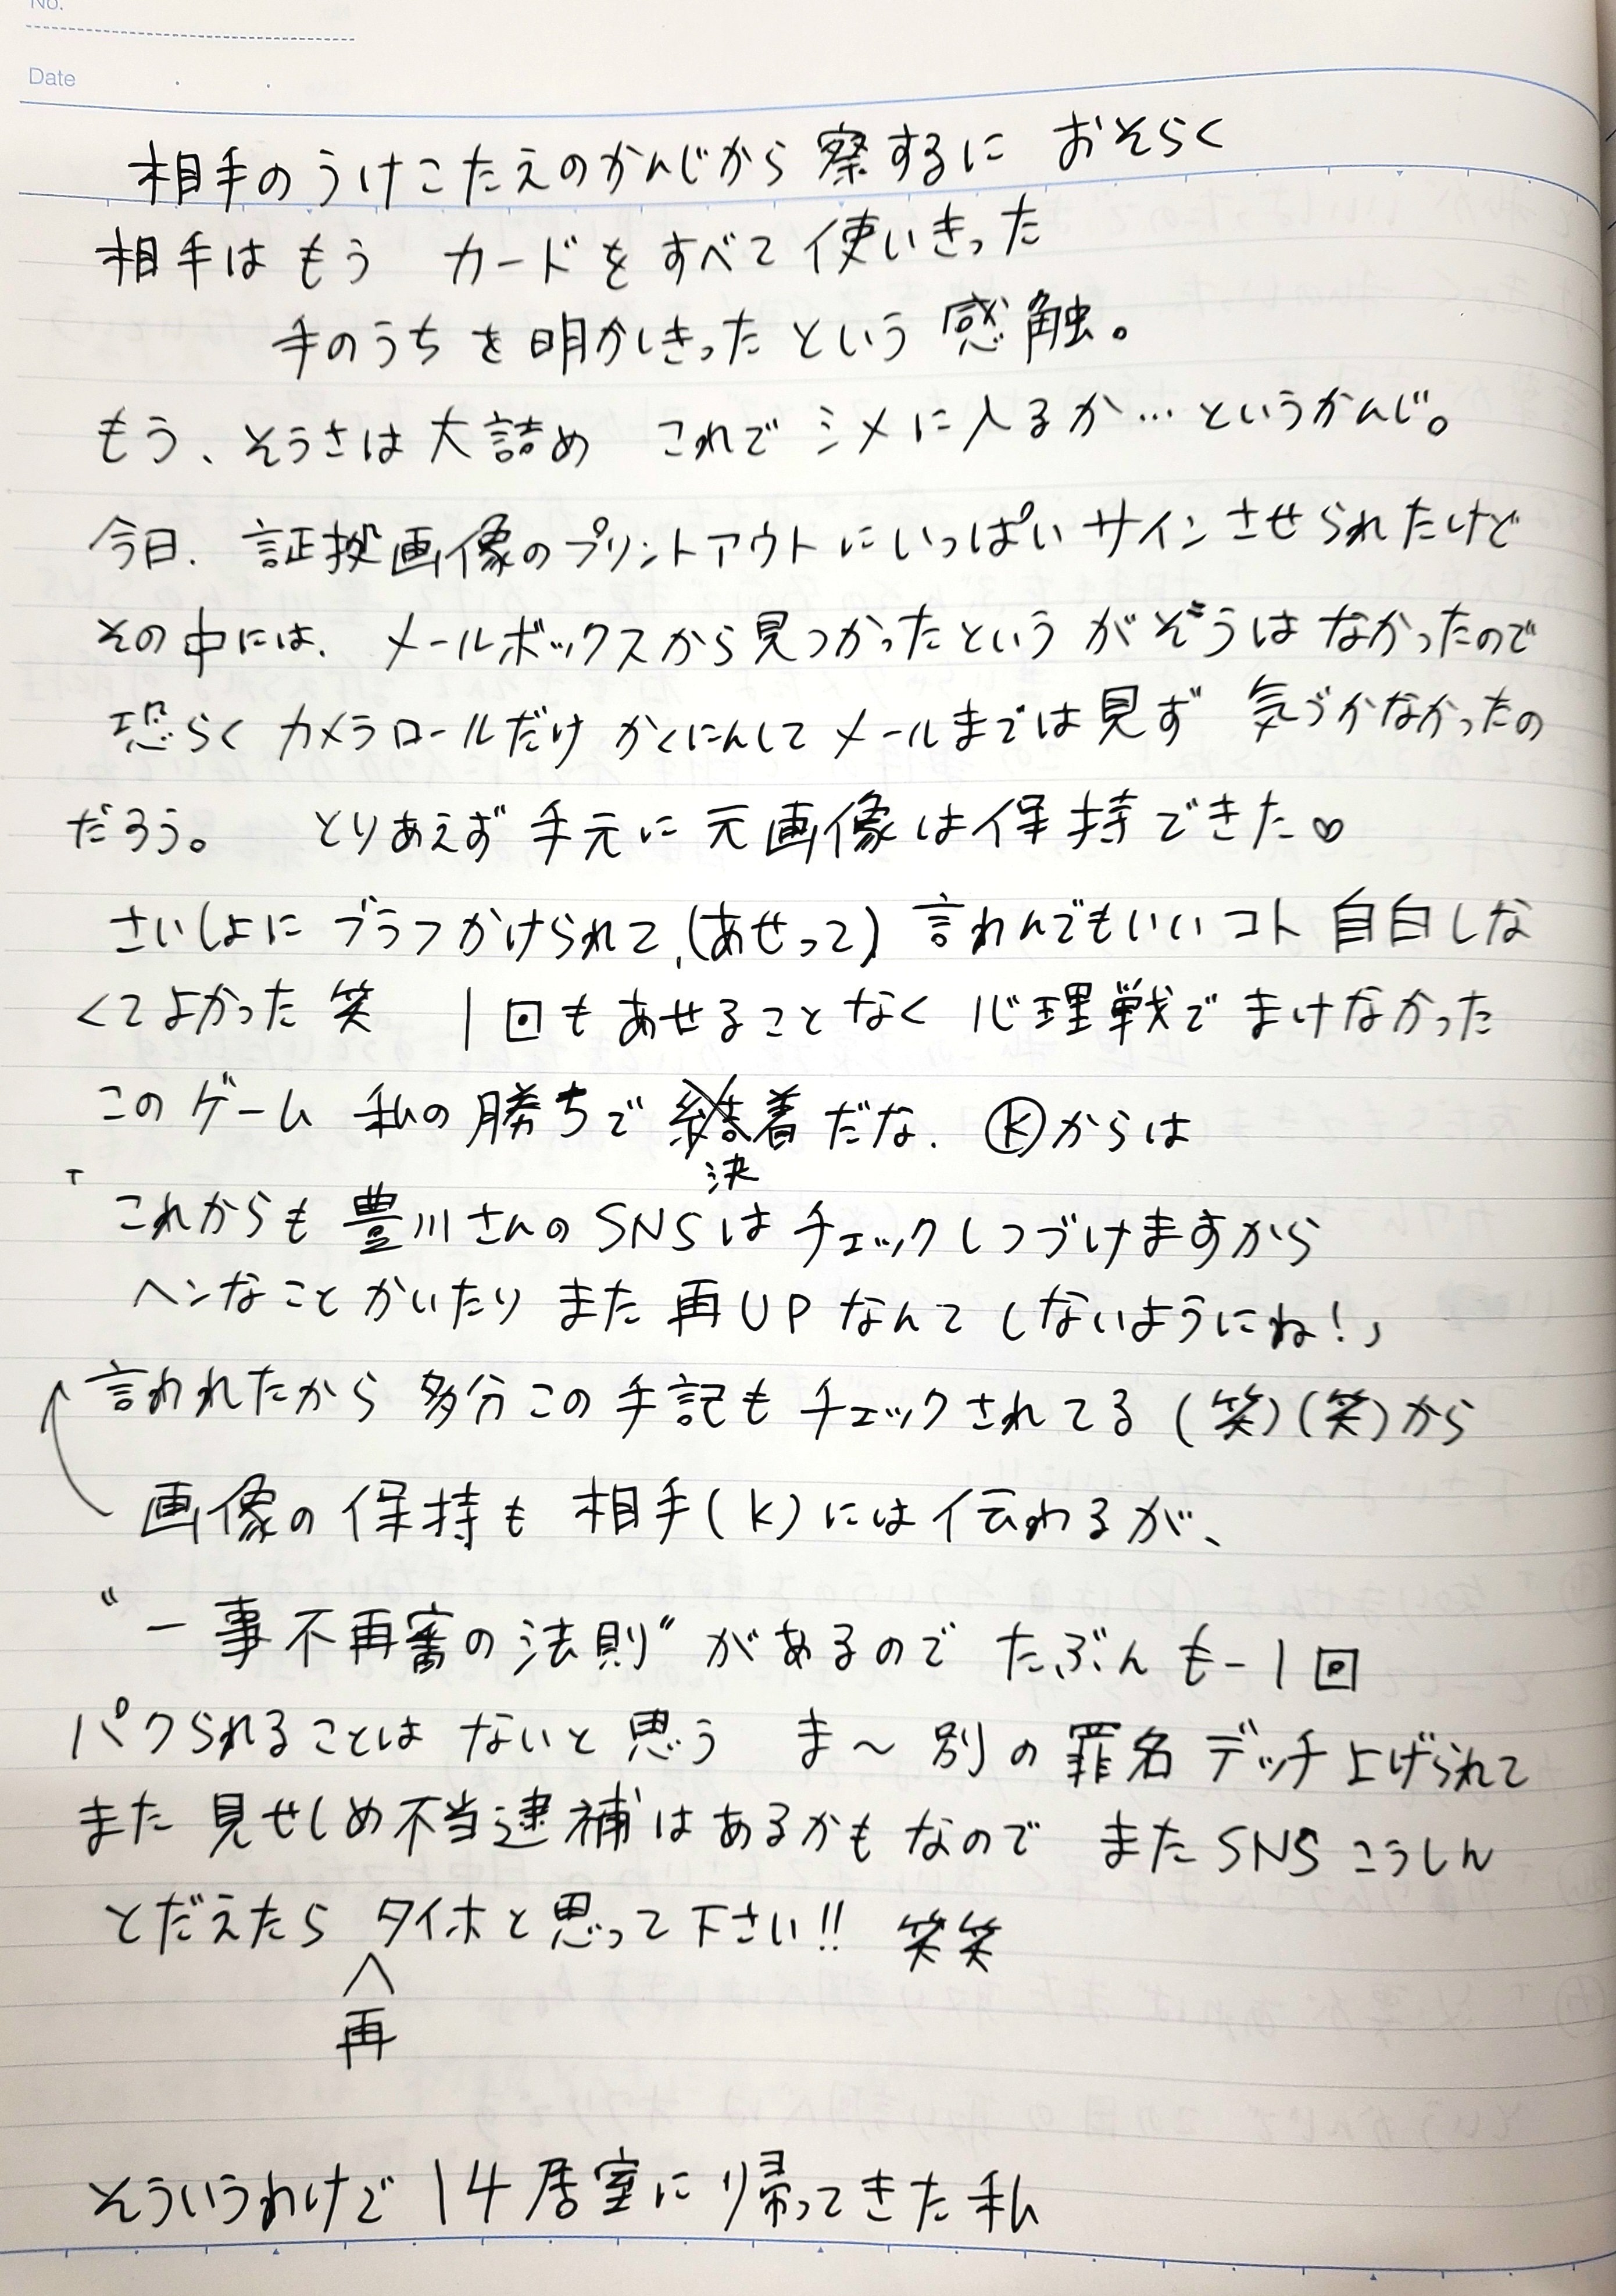 No.
Date
相手のうけこたえのかんじから察するに おそらく
相手はもう カードをすべて使いきった
手のうちを明かしきったという感触。
もう、そうさは大詰め これでシメに入るか…というかんじ。
今日、証拠画像のプリントアウトにいっぱいサインさせられたけど
その中には、メールボックスから見つかったというがぞうはなかったので
恐らくカメラロールだけかくにんしてメールまでは見ず 気づかなかったの
だろう。 とりあえず手元に元画像は保持できた♡
さいしょにブラフかけられて、(あせって)言わんでもいいコト自白しな
くてよかった笑 1回もあせることなく心理戦でまけなかった
このゲーム 私の勝ちで決着だな。Ⓚからは
「これからも豊川さんのSNSはチェックしつづけますから
ヘンなことかいたりまた再UPなんてしないようにね!」
言われたから多分この手記もチェックされてる(笑)(笑)から
画像の保持も相手(K)には伝わるが、
“一事不再審の法則”があるのでたぶんもー1回
パクられることはないと思う ま〜別の罪名デッチ上げられて
また見せしめ不当逮捕はあるかもなので またSNSこうしん
とだえたら再タイホと思って下さい!! 笑笑
そういうわけで14居室に帰ってきた私